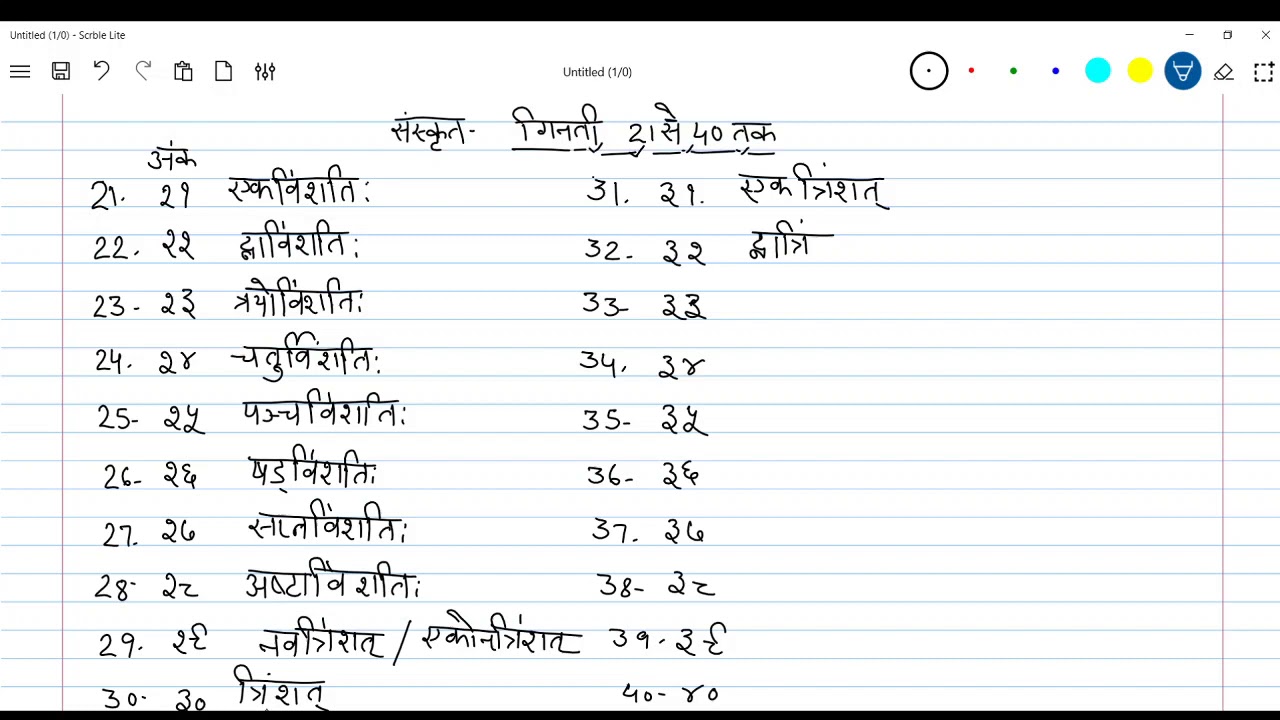 Untitled (1/0) - Scrble Lite
Untitled (1/0)
संस्कृत- गिनती 21 से 40 तक
अंक
21. २१ एकविंशतिः 31. ३१. एकत्रिंशत्
22. २२ द्वाविंशतिः 32- ३२ द्वात्रिं
23- २३ त्रयोविंशतिः 33- ३३
24. २४ चतुर्विंशतिः 34. ३४
25- २५ पञ्चविंशतिः 35- ३५
26- २६ षड्विंशतिः 36- ३६
27. २७ सप्तविंशतिः 37. ३७
28- २८ अष्टाविंशतिः 38- ३८
29. २९ नवत्रिंशत् / एकोनत्रिंशत् 39- ३९
30- ३० त्रिंशत् ४०- ४०